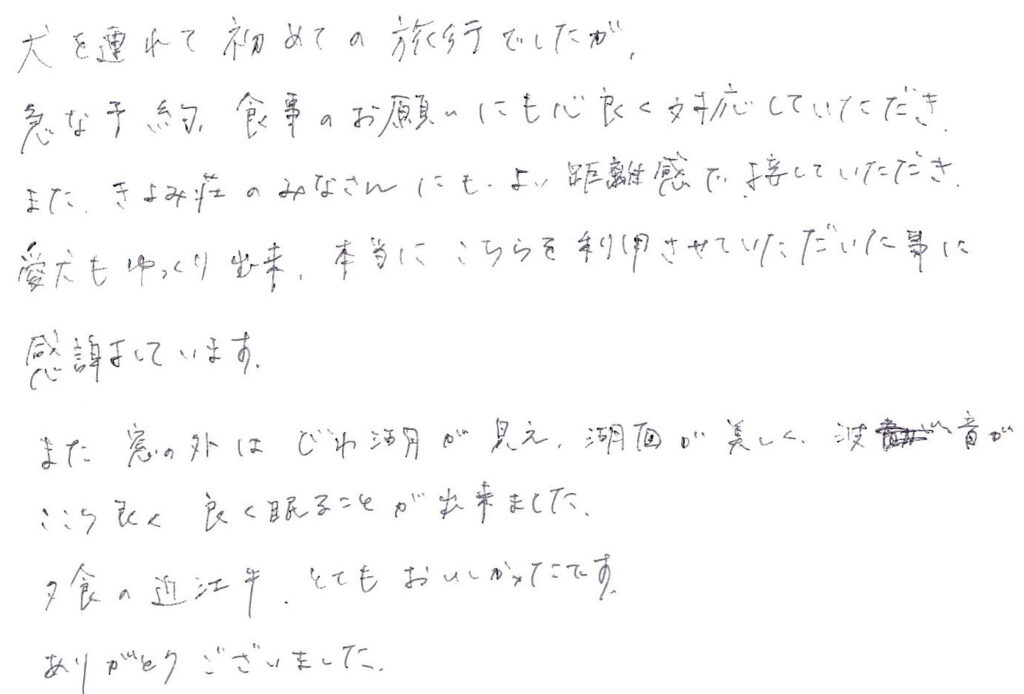 犬を連れて初めての旅行でしたが、
急な予約、食事のお願いにも心良く対応していただき、
また、きよみ荘のみなさんにも、よい距離感で、接していただき、
愛犬もゆっくり出来、本当にこちらを利用させていただいた事に
感謝しています。
また窓の外はびわ湖が見え、湖面が美しく、波音が
ここち良く良く眠ることが出来ました。
夕食の近江牛、とてもおいしかったです。
ありがとうございました。